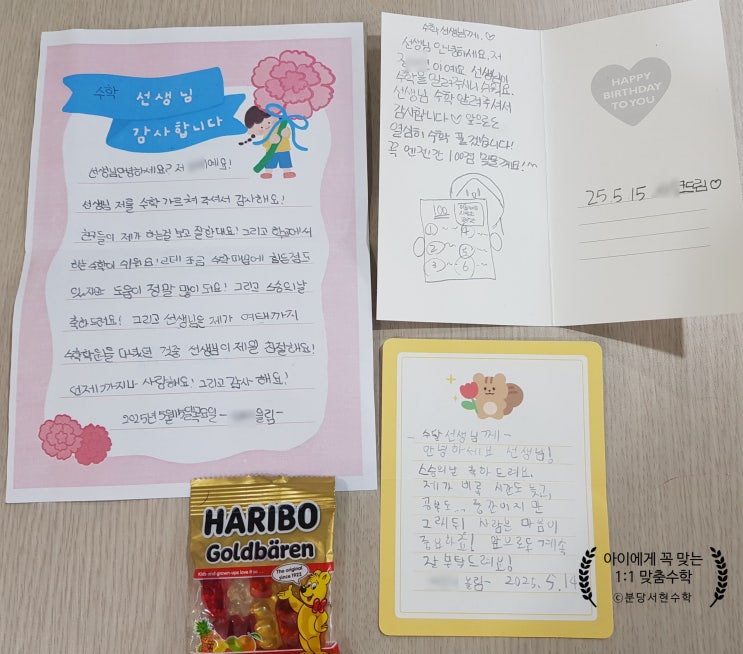 수학 선생님
감사합니다
선생님안녕하세요? 저 예요!
선생님 저를 수학 가르쳐 주셔서 감사해요!
친구들이 제가 하는걸 보고 잘한대요! 그리고 학교에서
하는 수학이 쉬워요! 근데 조금 수학 때문에 힘든점도
있지만 도움이 정말 많이 되요! 그리고 스승의날
축하드려요! 그리고 선생님은 제가 여태까지
수학학원을 다녔던 것중 선생님이 제일 친절해요!
언제까지나 사랑해요! 그리고 감사 해요!
2025년 5월15일목요일 - 올림-
수학선생님께..♡
선생님 안녕하세요. 저
이예요 선생님이
수학을 알려주시니 쉬워요.
선생님 수학 알려주셔서
감사합니다♡ 앞으로도
열심히 수학 풀겠습니다!
꼭 언젠간 100점 맞을게요!^^
100
① ~~ 4 ~~
② ~~ ⑤ ~~
③ ~~ 6 ~~
HAPPY
BIRTHDAY
TO YOU
25. 5. 15 드림♡
- 수달선생님께 -
안녕하세요 선생님!
스승의날 축하 드려요.
제가 비록 시간도 늦고,
공부도.. 중간이지만
그래도! 사람은 마음이
중요하죠! 앞으로도 계속
잘 부탁드려요!
올림- 2025. 5. 14
HARIBO
Goldbären
Kids and grown-ups love it so...
The original
since 1922
아이에게 꼭 맞는
1:1 맞춤수학
ⓒ분당서현수학